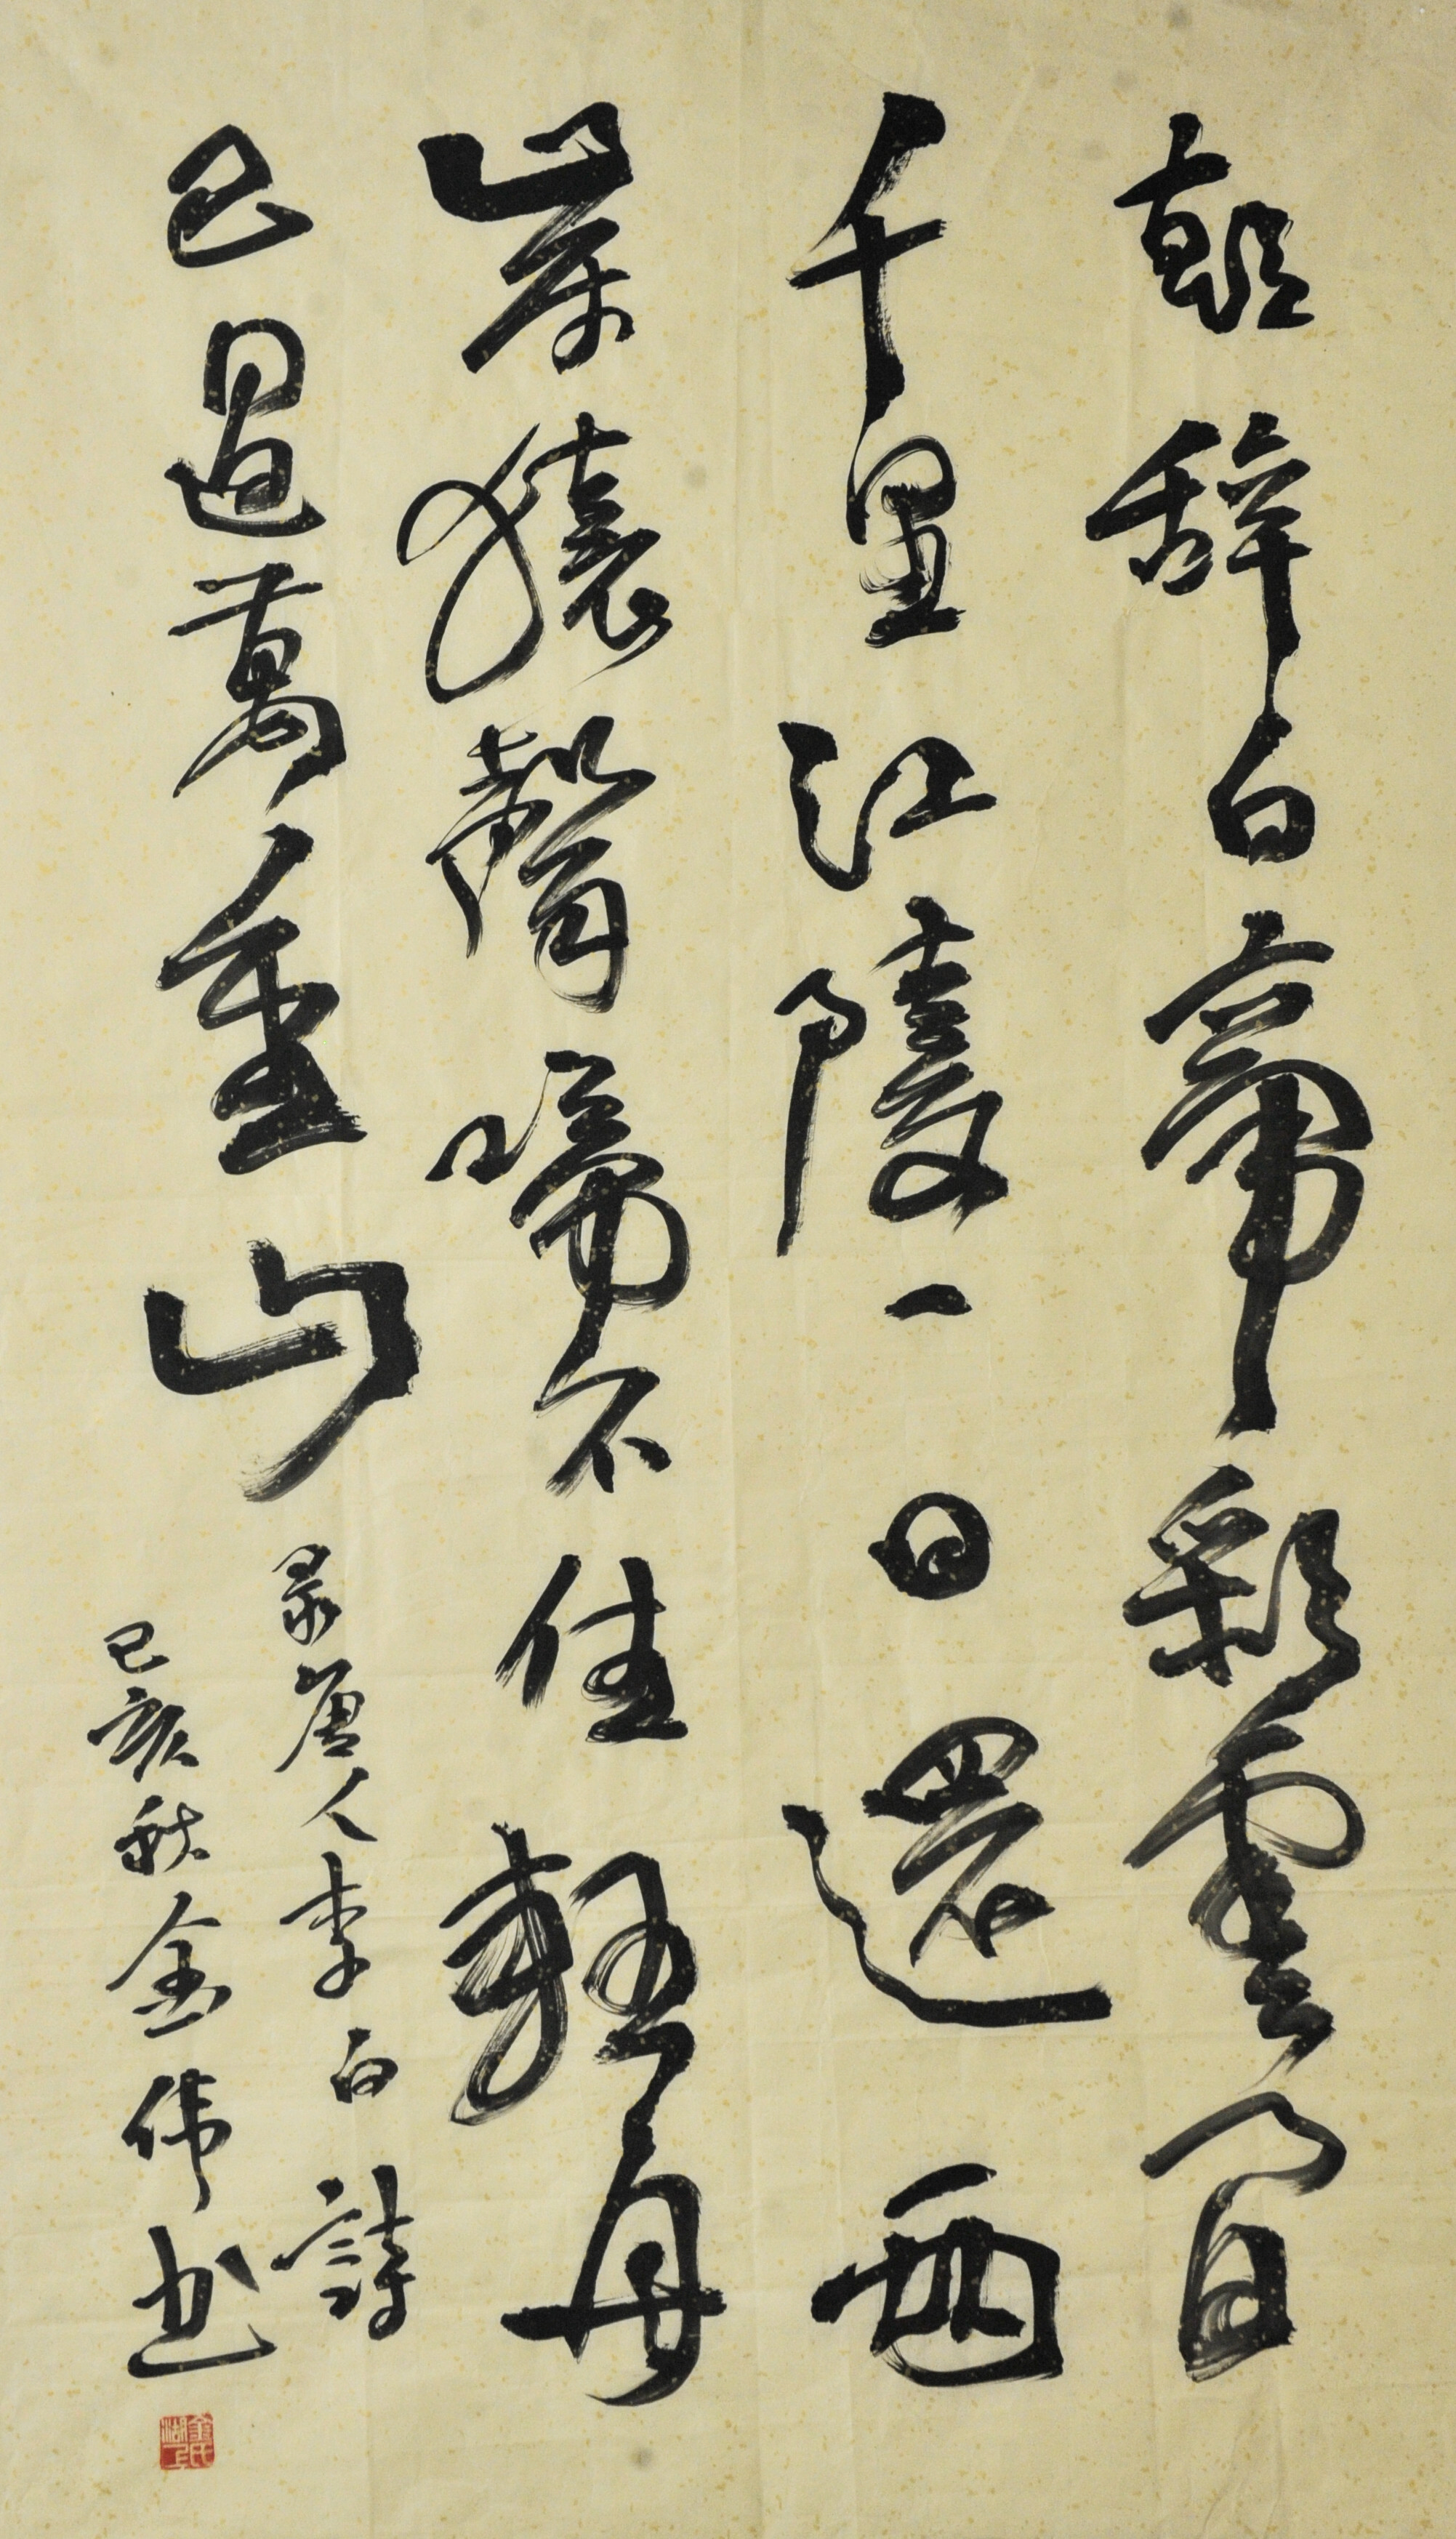 朝辞白帝彩雲間
千里江陵一日還兩
岸猿聲啼不住輕舟
已過萬重山
录唐人李白詩
己亥秋金伟书